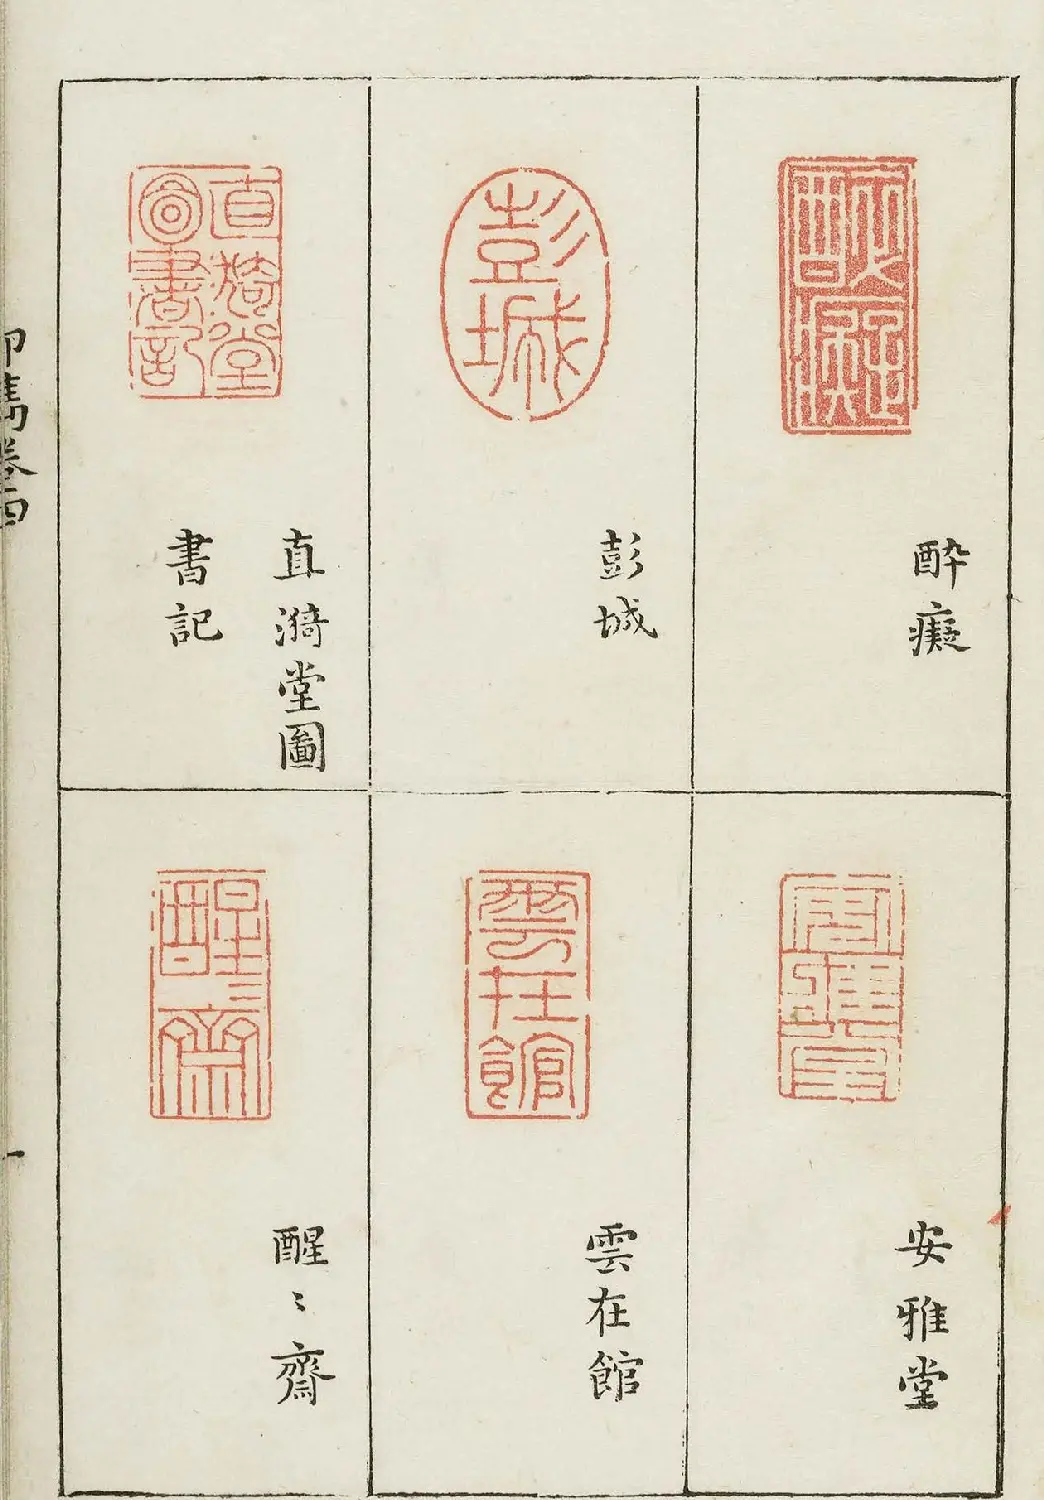 酔癡
彭城
直漪堂圖
書記
安雅堂
雲在館
醒〻齋
印雋卷四
一